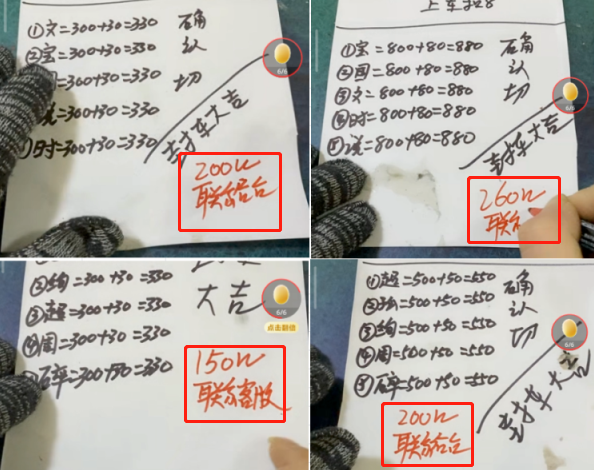 ①文=300+30=330
②宝=300+30=330
=300+30=330
=300+30=330
时=300+30=330
确
认
切
封车大吉
6/6
200U
联给台
上车
①宝=800+80=880
②周=800+80=880
③文=800+80=880
④时=800+80=880
=800+80=880
确
认
切
封车大吉
6/6
260U
联给
=300+30=330
③超=300+30=330
④周=300+30=330
=300+30=330
大吉
6/6
点击翻倍
150U
联系客服
①超=500+50=550
=500+50=550
=500+50=550
④周=500+50=550
=500+50=550
确
认
切
封车大吉
6/6
200U
联给台